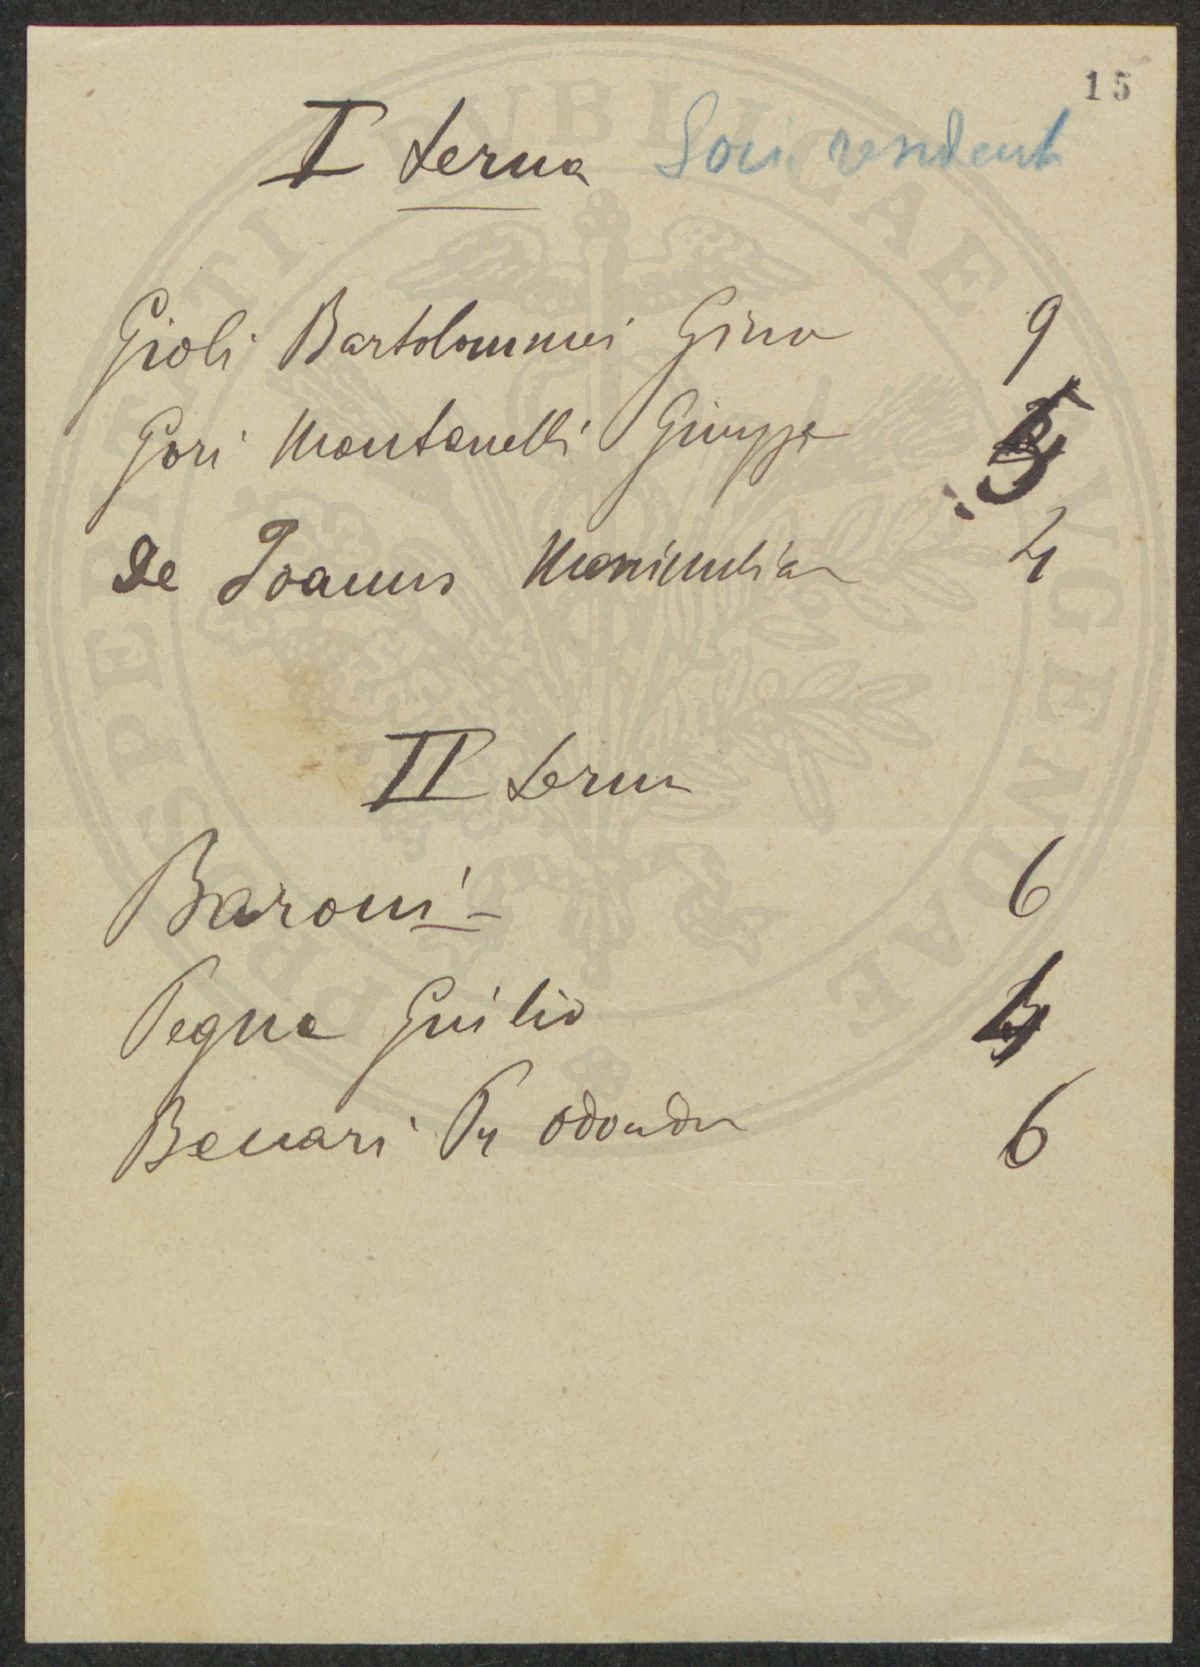 15
I terna Soci residenti
Gioli Bartolommei Gino 9
Gori Montanelli Giuseppe 5
De Joannis Massimilian 4
II terna
Baroni 6
Pegna Giulio
Benari Pr Odoardo 6
PROSPERITATI PUBLICAE AUGENDAE